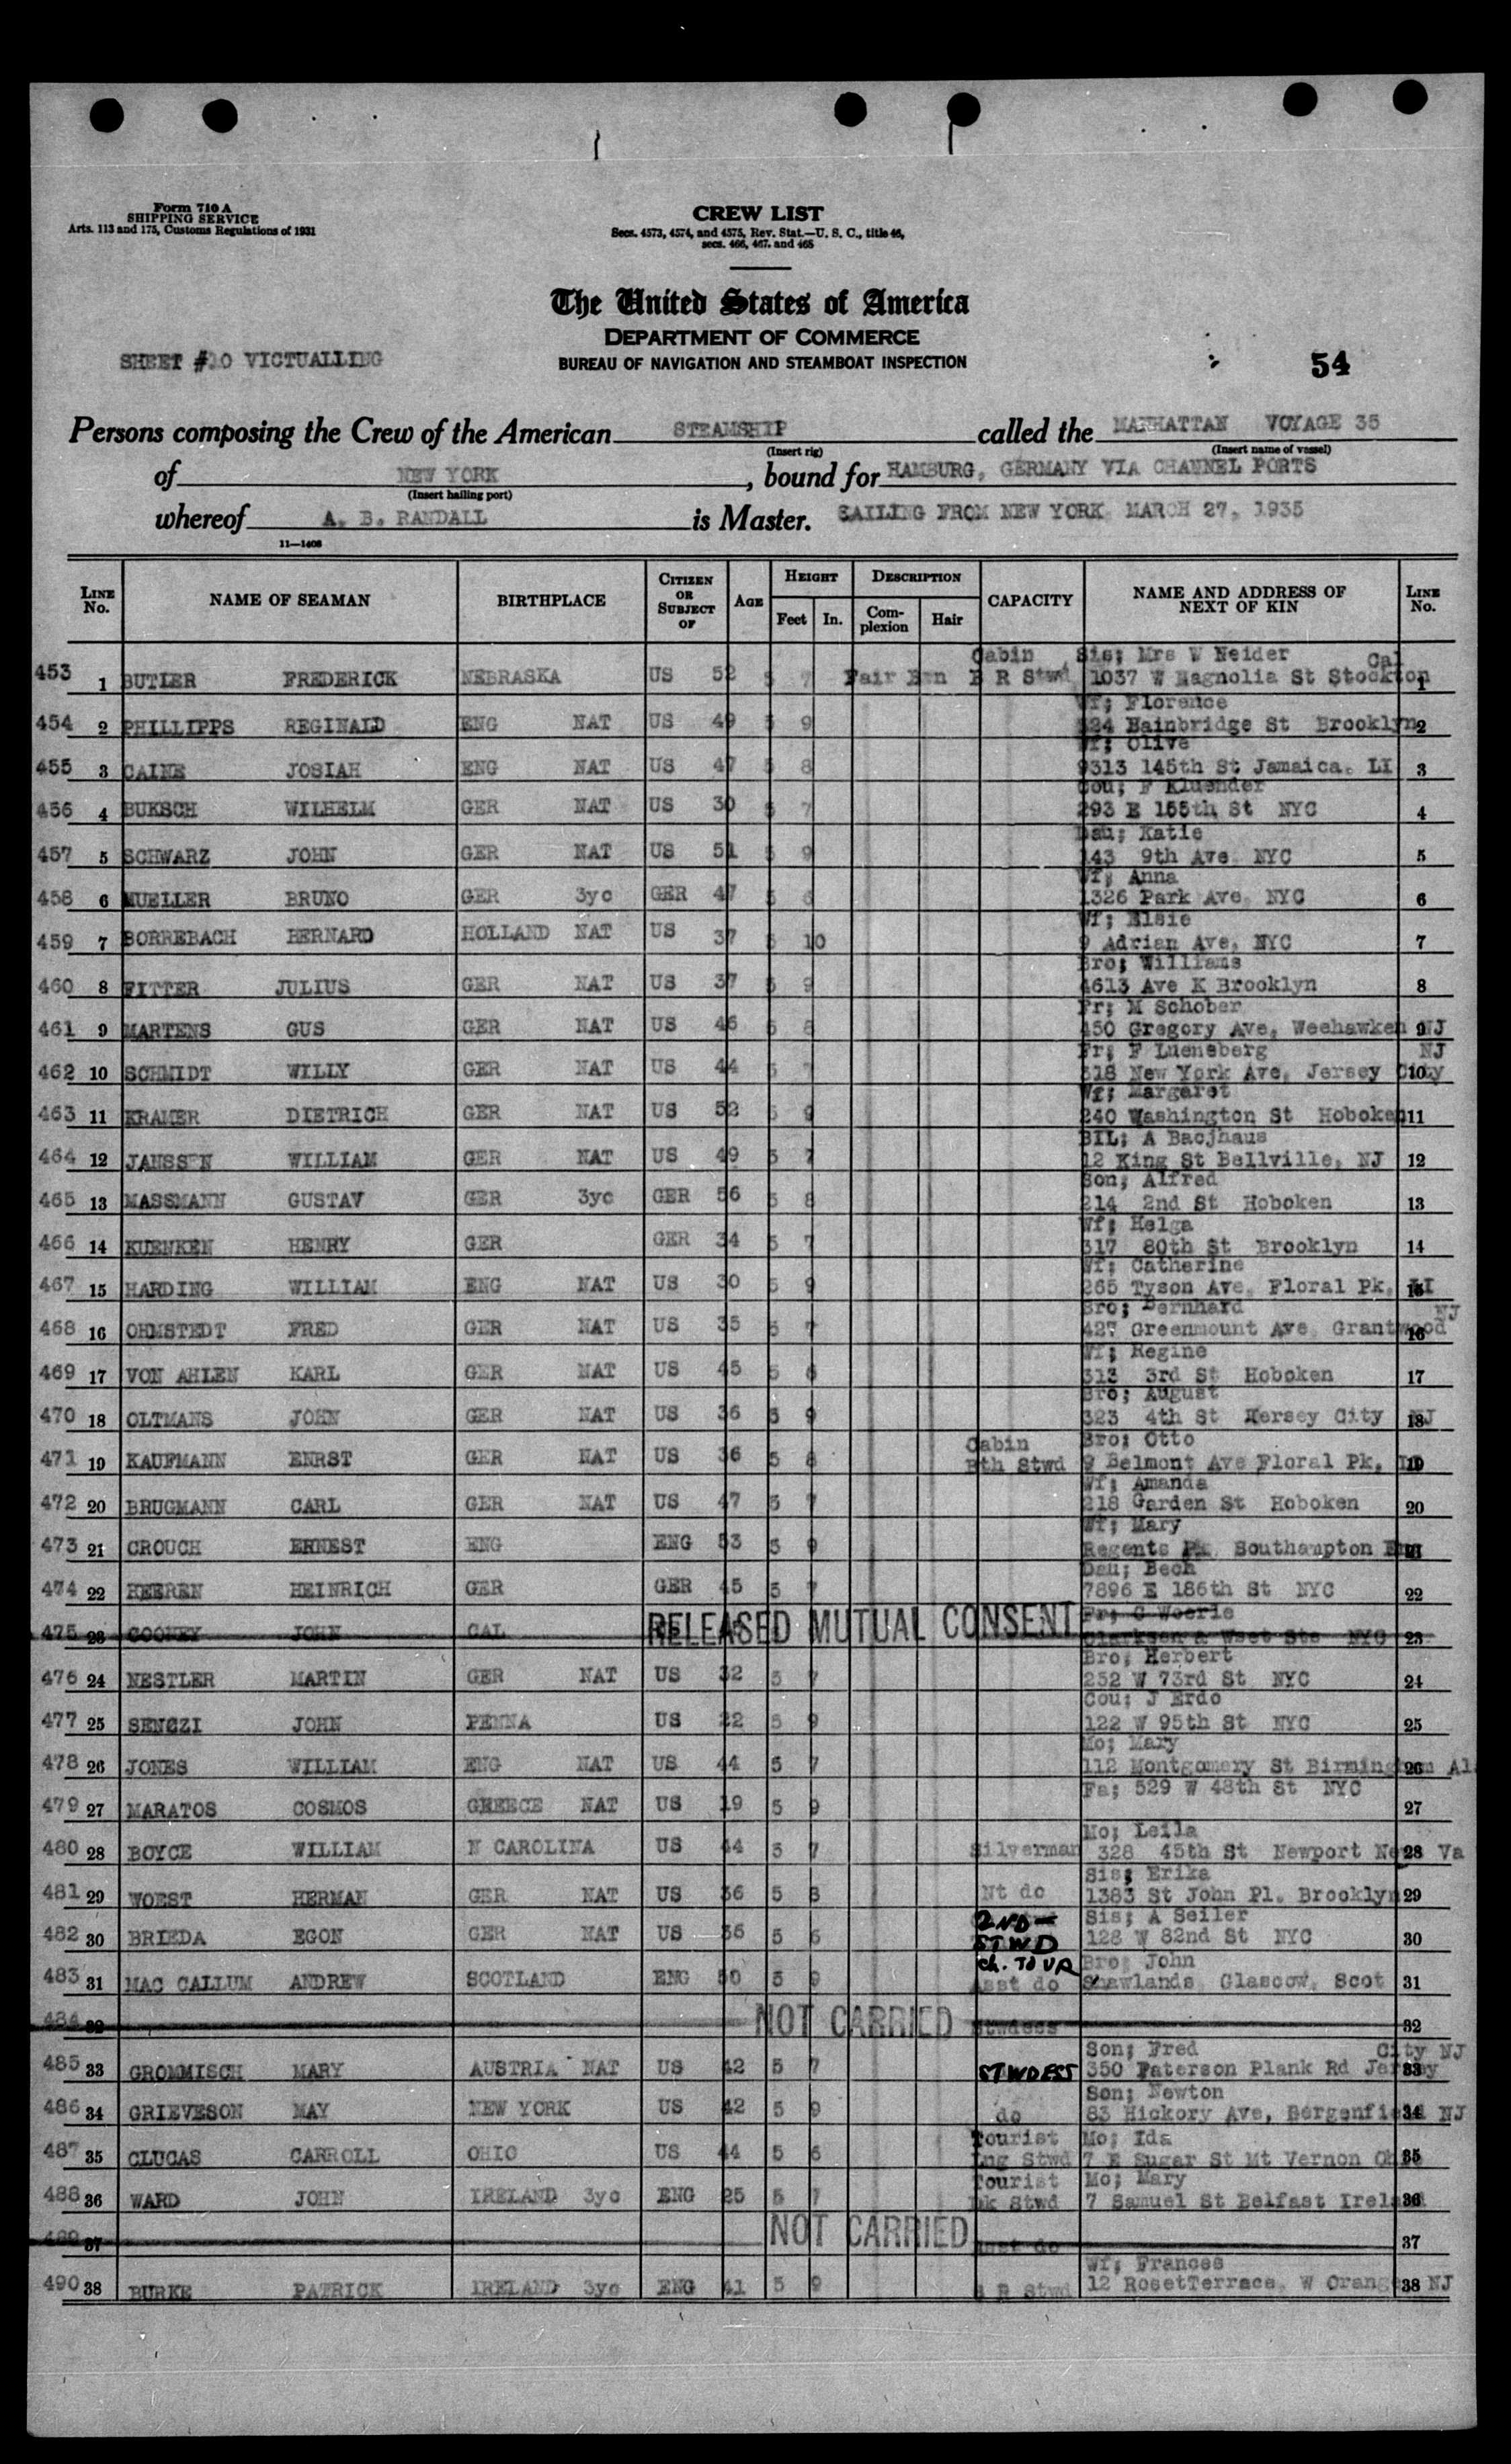 Form 710 A
SHIPPING SERVICE
Arts. 113 and 175, Customs Regulations of 1931
CREW LIST
Secs. 4573, 4574, and 4575, Rev. Stat.—U. S. C., title 46,
secs. 466, 467, and 468
The United States of America
DEPARTMENT OF COMMERCE
BUREAU OF NAVIGATION AND STEAMBOAT INSPECTION
SHEET #10 VICTUALLING
54
Persons composing the Crew of the American STEAMSHIP called the MANHATTAN VOYAGE 35
(Insert rig) (Insert name of vessel)
of NEW YORK, bound for HAMBURG, GERMANY VIA CHANNEL PORTS
(Insert hailing port)
whereof A. B. RANDALL is Master. SAILING FROM NEW YORK MARCH 27, 1935
11—1408
LINE No. NAME OF SEAMAN BIRTHPLACE CITIZEN OR SUBJECT OF AGE HEIGHT Feet In. DESCRIPTION Complexion Hair CAPACITY NAME AND ADDRESS OF NEXT OF KIN LINE No.
Cabin Sis; Mrs W Neider Cal
453 1 BUTLER FREDERICK NEBRASKA US 52 5 7 Fair Brn B R Stwd 1037 W Magnolia St Stockton 1
Wf; Florence
454 2 PHILLIPPS REGINALD ENG NAT US 49 5 9 324 Bainbridge St Brooklyn 2
Wf; Olive
455 3 CAINE JOSIAH ENG NAT US 47 5 8 9313 145th St Jamaica, LI 3
Cou; F Kluender
456 4 BUKSCH WILHELM GER NAT US 30 5 7 293 E 155th St NYC 4
Dau; Katie
457 5 SCHWARZ JOHN GER NAT US 51 5 9 143 9th Ave NYC 5
Wf; Anna
458 6 MUELLER BRUNO GER 3yc GER 47 5 6 1326 Park Ave, NYC 6
Wf; Elsie
459 7 BORREBACH BERNARD HOLLAND NAT US 37 5 10 9 Adrian Ave, NYC 7
Bro; Williams
460 8 FITTER JULIUS GER NAT US 37 5 9 4613 Ave K Brooklyn 8
Fr; M Schober
461 9 MARTENS GUS GER NAT US 46 5 8 450 Gregory Ave, Weehawken NJ 9
Fr; F Lueneberg NJ
462 10 SCHMIDT WILLY GER NAT US 44 5 7 318 New York Ave, Jersey City 10
Wf; Margaret
463 11 KRAMER DIETRICH GER NAT US 52 5 9 240 Washington St Hoboken 11
BIL; A Bacjhaus
464 12 JANSSEN WILLIAM GER NAT US 49 5 7 12 King St Bellville, NJ 12
Son; Alfred
465 13 MASSMANN GUSTAV GER 3yc GER 56 5 8 214 2nd St Hoboken 13
Wf; Helga
466 14 KUENKEN HENRY GER GER 34 5 7 317 80th St Brooklyn 14
Wf; Catherine
467 15 HARDING WILLIAM ENG NAT US 30 5 9 265 Tyson Ave, Floral Pk, LI 15
Bro; Bernhard NJ
468 16 OHMSTEDT FRED GER NAT US 35 5 7 427 Greenmount Ave Grantwood 16
Wf; Regine
469 17 VON AHLEN KARL GER NAT US 45 5 6 313 3rd St Hoboken 17
Bro; August
470 18 OLTMANS JOHN GER NAT US 36 5 9 323 4th St Kersey City NJ 18
Cabin Bro; Otto
471 19 KAUFMANN ENRST GER NAT US 36 5 8 Bth Stwd 9 Belmont Ave Floral Pk, LI 19
Wf; Amanda
472 20 BRUGMANN CARL GER NAT US 47 5 7 218 Garden St Hoboken 20
Wf; Mary
473 21 CROUCH ERNEST ENG ENG 53 5 9 Regents Pk Southampton Eng 21
Dau; Bech
474 22 HEEREN HEINRICH GER GER 45 5 7 7896 E 186th St NYC 22
Fr; C Woerle
475 23 COONEY JOHN CAL RELEASED MUTUAL CONSENT Clarkson & West Sts NYC 23
Bro; Herbert
476 24 NESTLER MARTIN GER NAT US 32 5 7 252 W 73rd St NYC 24
Cou; J Erdo
477 25 SENCZI JOHN PENNA US 22 5 9 122 W 95th St NYC 25
Mo; Mary
478 26 JONES WILLIAM ENG NAT US 44 5 7 112 Montgomery St Birmingham Al 26
Fa; 529 W 48th St NYC
479 27 MARATOS COSMOS GREECE NAT US 19 5 9 27
Mo; Leila
480 28 BOYCE WILLIAM N CAROLINA US 44 5 7 Silverman 328 45th St Newport News Va 28
Sis; Erika
481 29 WOEST HERMAN GER NAT US 36 5 8 Nt do 1383 St John Pl. Brooklyn 29
2ND Sis; A Seiler
482 30 BRIEDA EGON GER NAT US 36 5 6 STWD 128 W 82nd St NYC 30
Ch. TO UR Bro; John
483 31 MAC CALLUM ANDREW SCOTLAND ENG 50 5 9 Asst do Shawlands Glascow, Scot 31
484 32 NOT CARRIED Stwdess 32
Son; Fred City NJ
485 33 GROMMISCH MARY AUSTRIA NAT US 42 5 7 STWDESS 350 Paterson Plank Rd Jersey 33
Son; Newton
486 34 GRIEVESON MAY NEW YORK US 42 5 9 do 83 Hickory Ave, Bergenfield NJ 34
Tourist Mo; Ida
487 35 CLUCAS CARROLL OHIO US 44 5 6 Lng Stwd 7 E Sugar St Mt Vernon Ohio 35
Tourist Mo; Mary
488 36 WARD JOHN IRELAND 3yc ENG 25 5 7 Dk Stwd 7 Samuel St Belfast Ireland 36
489 37 NOT CARRIED Asst do 37
Wf; Frances
490 38 BURKE PATRICK IRELAND 3yc ENG 41 5 9 B R Stwd 12 RosetTerrace, W Orange NJ 38